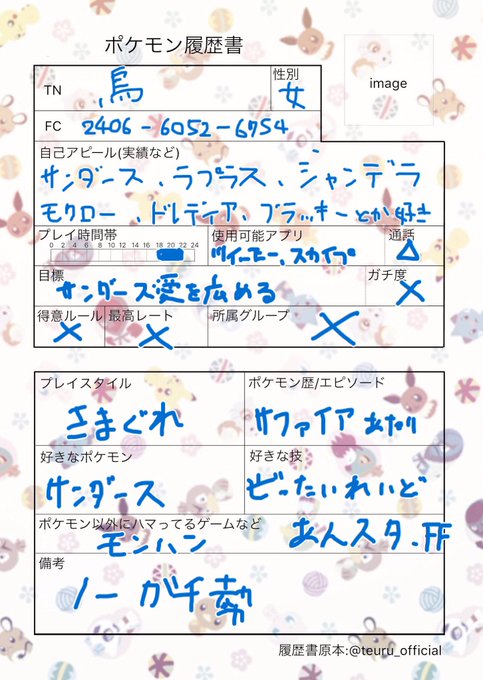 ポケモン履歴書
TN 烏
性別 女
image
FC 2406-6052-6754
自己アピール(実績など)
サンダース、ラプラス、シャンデラ
モクロー、ドレディア、ブラッキーとか好き
プレイ時間帯
0 2 4 6 8 10 12 14 16 18 20 22 24
使用可能アプリ
ツイッター、スカイプ
通話
△
目標
サンダース愛を広める
ガチ度
×
得意ルール
×
最高レート
×
所属グループ
×
プレイスタイル
きまぐれ
ポケモン歴/エピソード
サファイアあたり
好きなポケモン
サンダース
好きな技
ぜったいれいど
ポケモン以外にハマってるゲームなど
モンハン あんスタ、FF
備考
ノーガチ勢
履歴書原本:@teuru_official